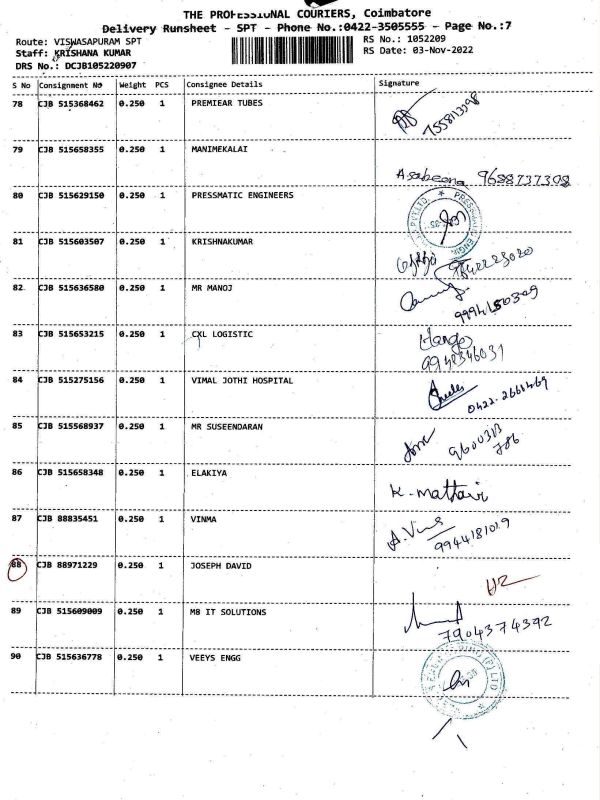 THE PROFESSIONAL COURIERS, Coimbatore
Delivery Runsheet - SPT - Phone No.:0422-3505555 - Page No.:7
Route: VISWASAPURAM SPT
RS No.: 1052209
Staff: KRISHANA KUMAR
RS Date: 03-Nov-2022
DRS No.: DCJB105220907
S No Consignment No Weight PCS Consignee Details Signature
78 CJB 515368462 0.250 1 PREMIEAR TUBES
79 CJB 515658355 0.250 1 MANIMEKALAI
A sabeena 9688737308
80 CJB 515629150 0.250 1 PRESSMATIC ENGINEERS
81 CJB 515603507 0.250 1 KRISHNAKUMAR
9842223020
82 CJB 515636580 0.250 1 MR MANOJ
9994150309
83 CJB 515653215 0.250 1 CXL LOGISTIC
9940346031
84 CJB 515275156 0.250 1 VIMAL JOTHI HOSPITAL
85 CJB 515568937 0.250 1 MR SUSEENDARAN
9600313
786
86 CJB 515658348 0.250 1 ELAKIYA
K. mattavi
87 CJB 88835451 0.250 1 VINMA
A. Vins
9944181019
88 CJB 88971229 0.250 1 JOSEPH DAVID
89 CJB 515609009 0.250 1 M8 IT SOLUTIONS
7904374392
90 CJB 515636778 0.250 1 VEEYS ENGG